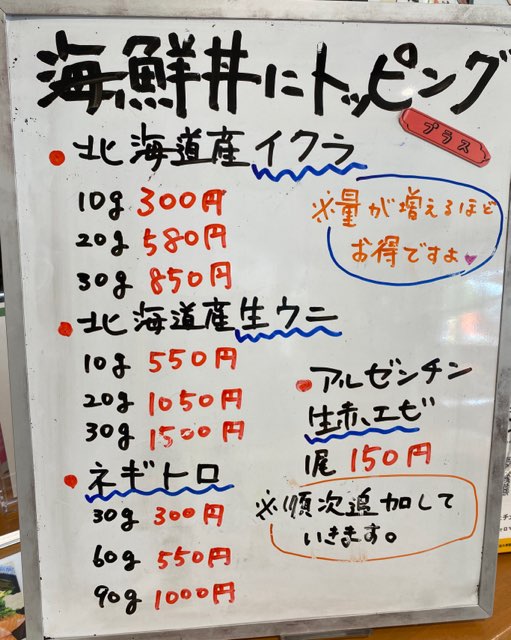 海鮮丼にトッピング
プラス
北海道産イクラ
10g 300円
20g 580円
30g 850円
※量が増えるほど
お得ですよ
北海道産生ウニ
10g 550円
20g 1050円
30g 1500円
ネギトロ
30g 300円
60g 550円
90g 1000円
アルゼンチン
生赤エビ
1尾 150円
※順次追加して
いきます。